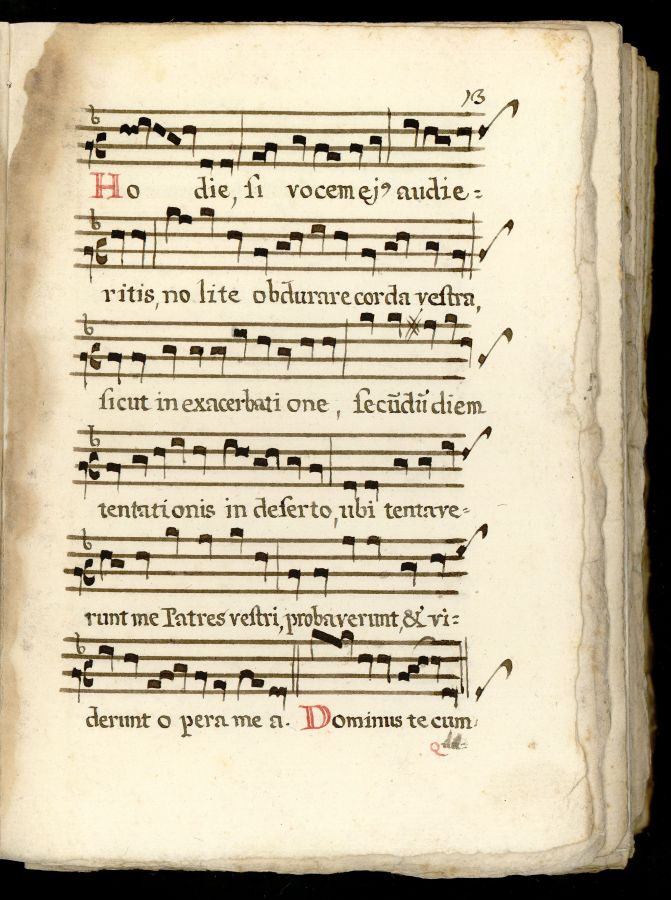 13
Ho die, si vocem ejꝰ audie=
ritis, no lite obdurare corda vestra,
sicut in exacerbati one, secũdũ diem
tentationis in deserto, ubi tentave=
runt me Patres vestri, probaverunt, & vi=
derunt o pera me a. Dominus te cum